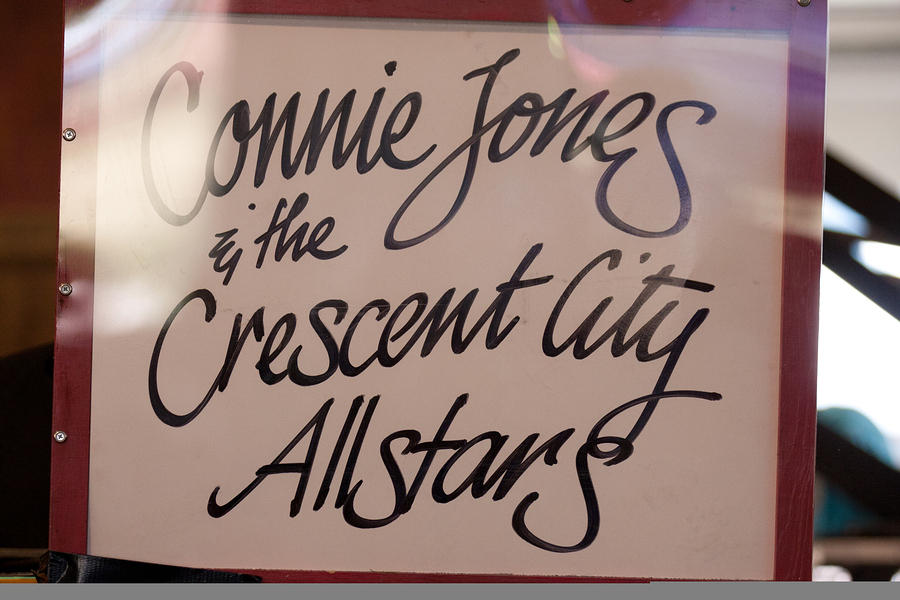 Connie Jones
& the
Crescent City
Allstars